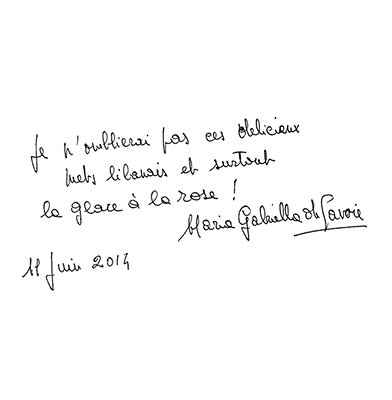 Je n'oublierai pas ces delicieux
mets libanais et surtout
la glace à la rose !
Maria Gabriella di Savoie
11 Juin 2014